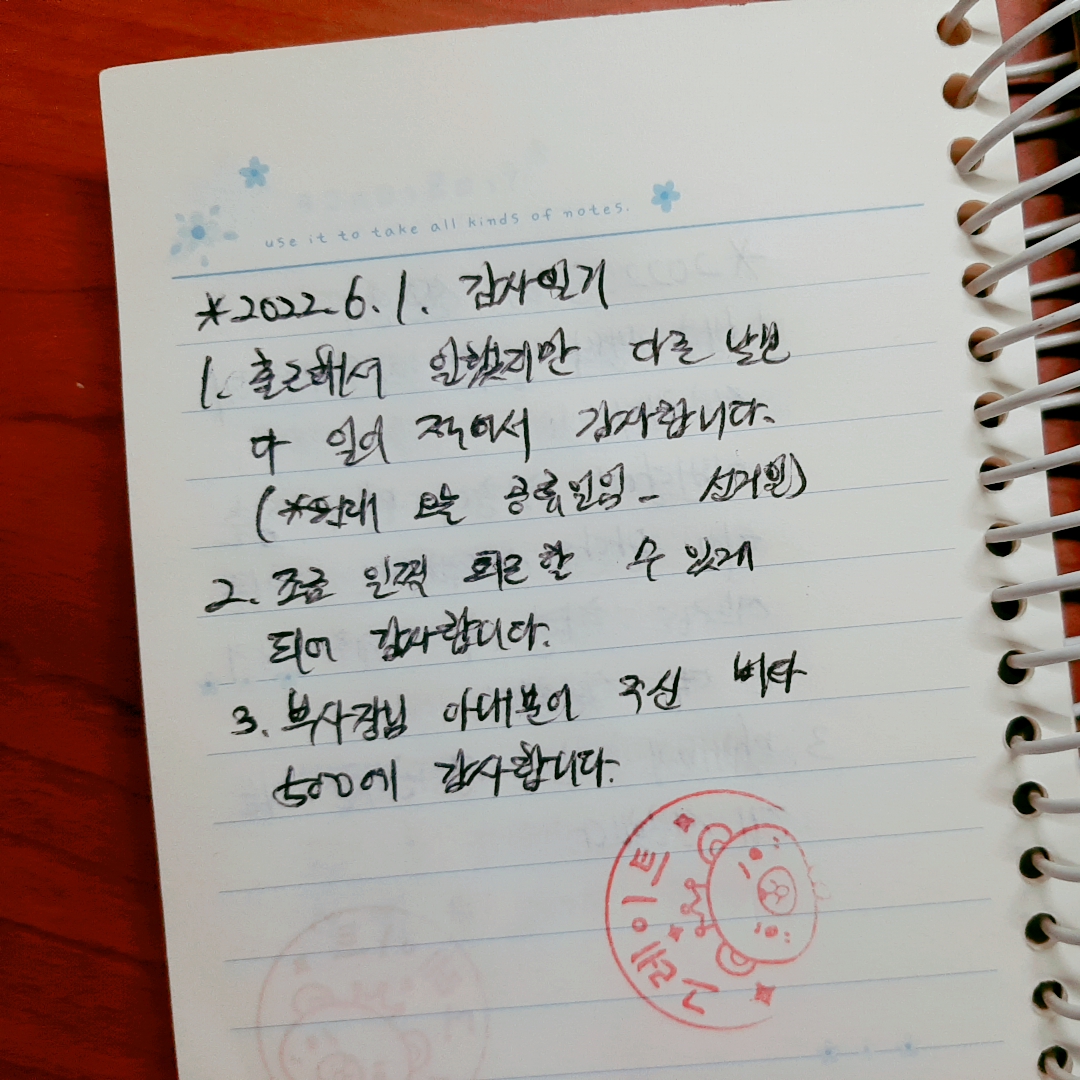 use it to take all kinds of notes.
*2022.6.1. 감사일기
1. 출근해서 일했지만 다른 날보
다 일이 적어서 감사합니다.
(*원래 오늘 공휴일임 - 선거일)
2. 조금 일찍 퇴근할 수 있게
되어 감사합니다.
3. 부사장님 아내분이 주신 비타
500에 감사합니다.
그레이트